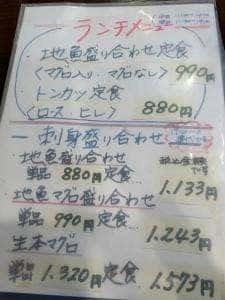 ランチメニュー
・地魚盛り合わせ定食
(マグロ入り・マグロなし) 990円
・トンカツ定食
(ロース、ヒレ) 880円
一刺身盛り合わせ
地魚盛り合わせ 税込金額
単品 880円 定食… 1.133円
地魚マグロ盛り合わせ
単品 990円 定食… 1.243円
生本マグロ
単品 1.320円 定食 1.573円